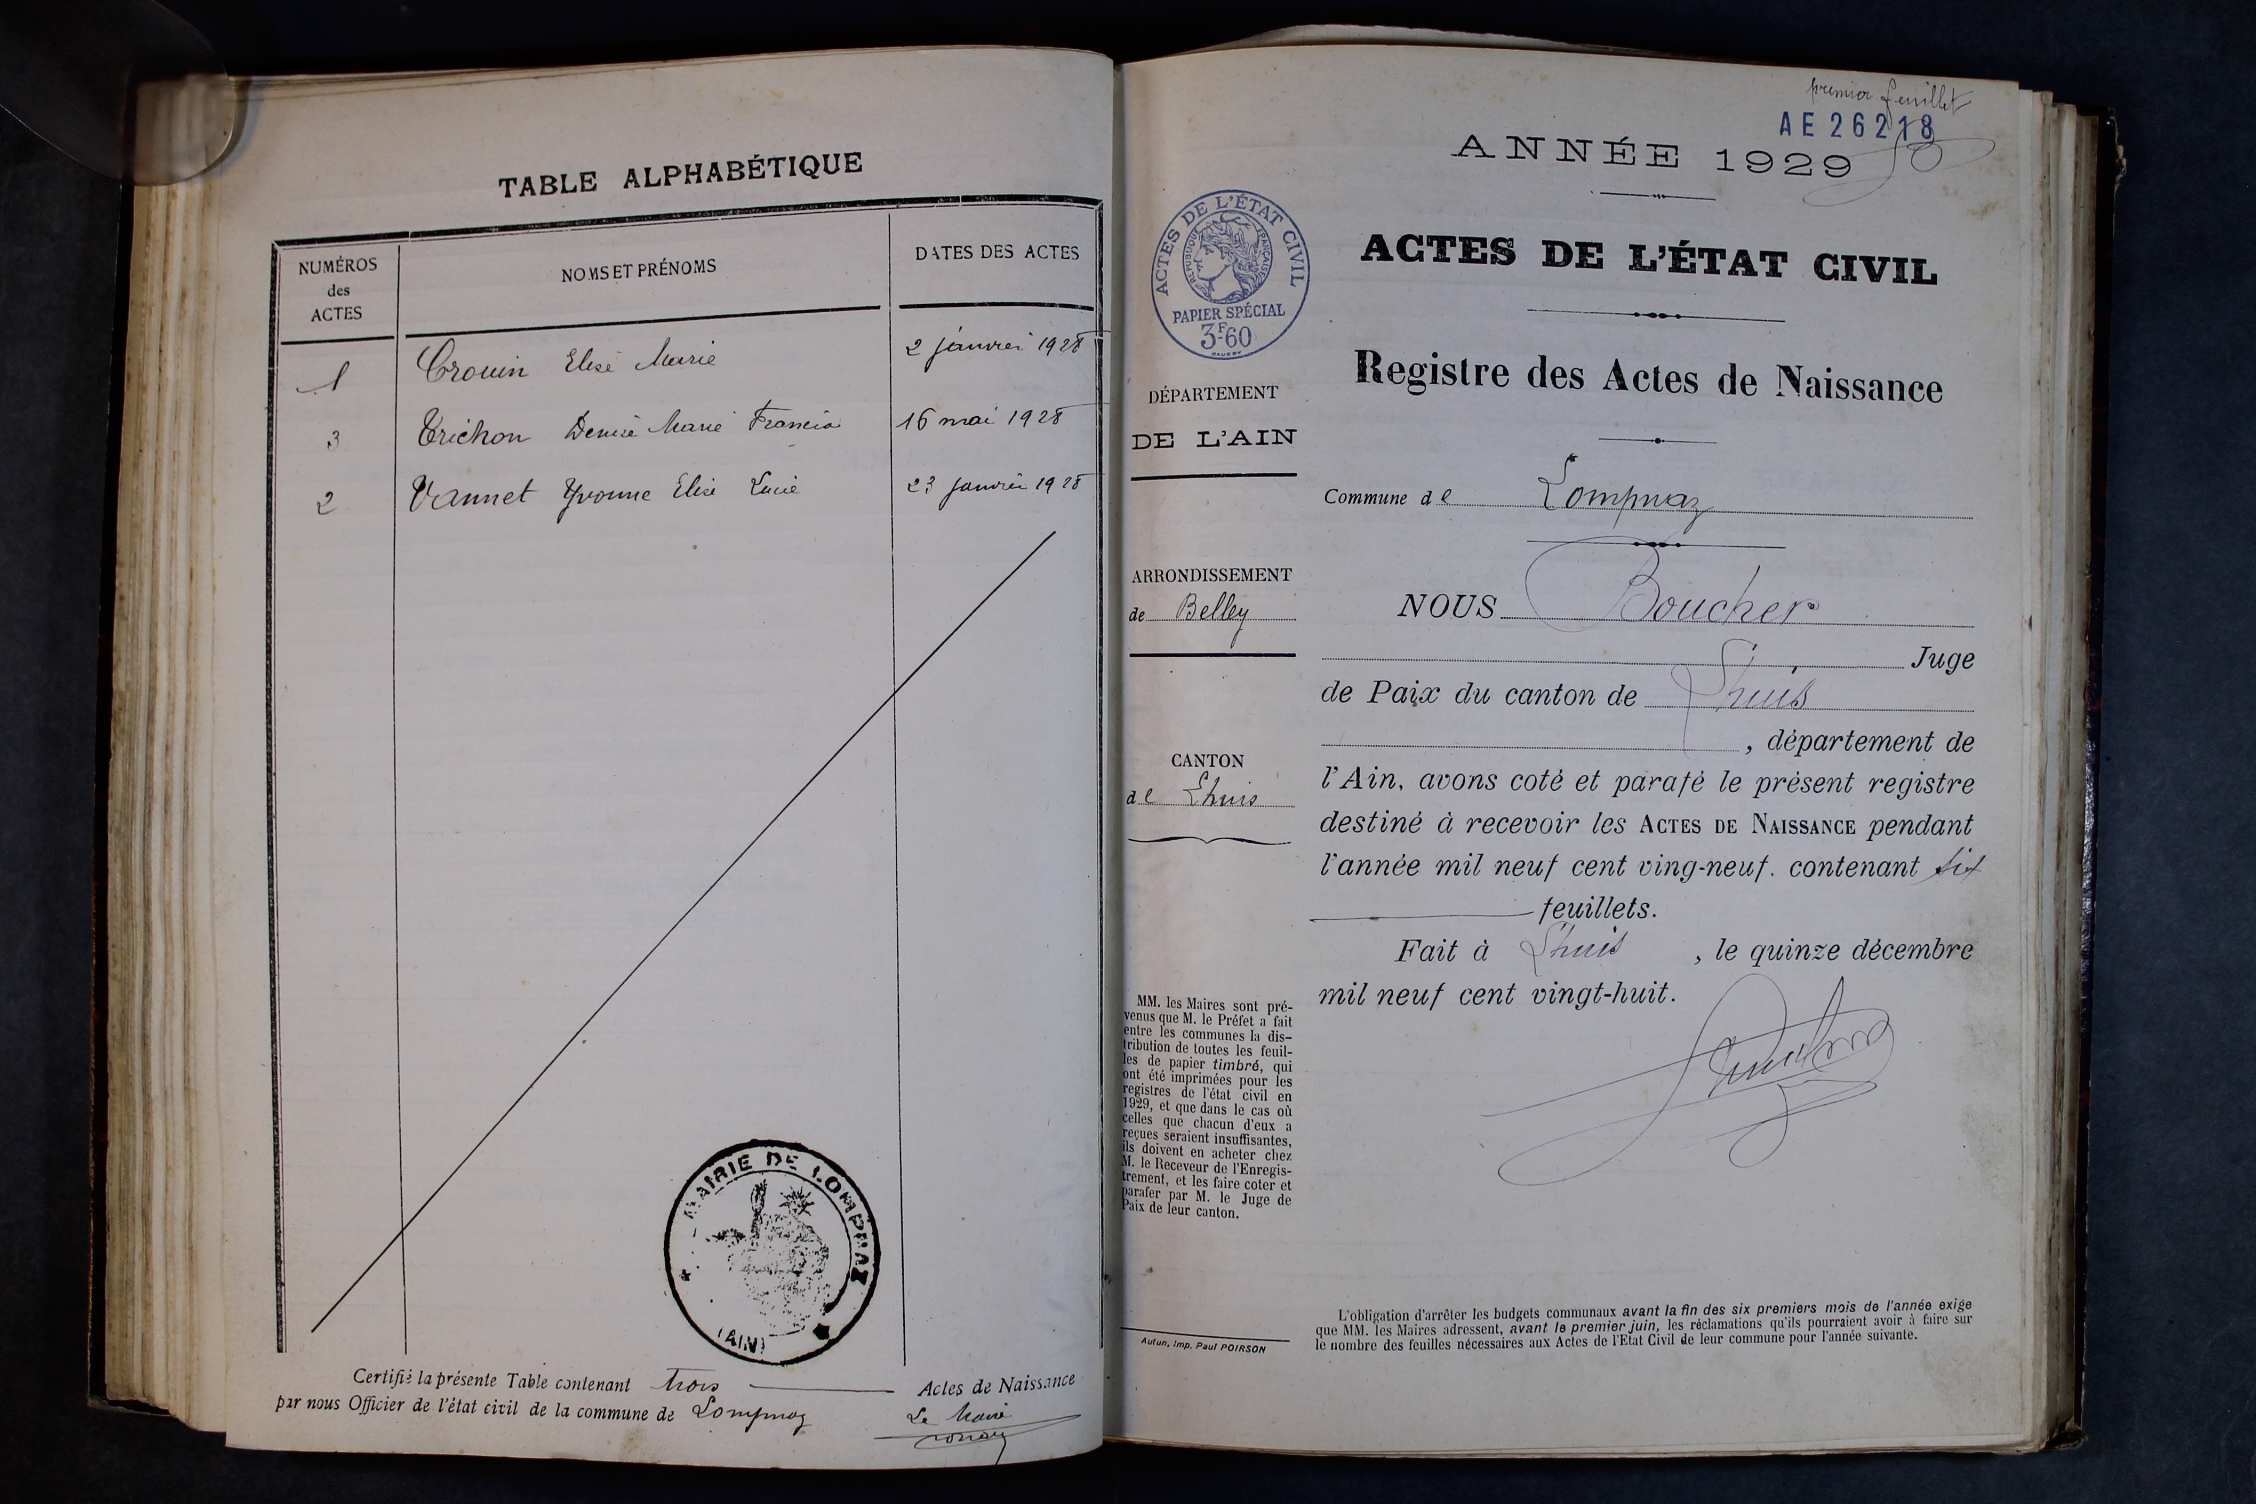 TABLE ALPHABÉTIQUE
NUMÉROS des ACTES
NOMS ET PRÉNOMS
DATES DES ACTES
1 Crouin Elise Marie 2 janvier 1928
3 Trichon Denise Marie Francia 16 mai 1928
2 Vannet Yvonne Elise Lucie 23 janvier 1928
MAIRIE DE LOMPNAZ
(AIN)
Certifié la présente Table contenant trois Actes de Naissance
par nous Officier de l'état civil de la commune de Lompnaz
Le Maire
premier feuillet
AE 26218
ANNÉE 1929
ACTES DE L'ÉTAT CIVIL
RÉPUBLIQUE FRANÇAISE
PAPIER SPÉCIAL
3F60
ACTES DE L'ÉTAT CIVIL
Registre des Actes de Naissance
DÉPARTEMENT
DE L'AIN
Commune de Lompnaz
ARRONDISSEMENT
de Belley
CANTON
de Lhuis
NOUS Boucher
Juge
de Paix du canton de Lhuis
, département de
l'Ain, avons coté et parafé le présent registre
destiné à recevoir les ACTES DE NAISSANCE pendant
l'année mil neuf cent ving-neuf. contenant six
feuillets.
Fait à Lhuis , le quinze décembre
mil neuf cent vingt-huit.
MM. les Maires sont pré-
venus que M. le Préfet a fait
entre les communes la dis-
tribution de toutes les feuil-
les de papier timbré, qui
ont été imprimées pour les
registres de l'état civil en
1929, et que dans le cas où
celles que chacun d'eux a
reçues seraient insuffisantes,
ils doivent en acheter chez
M. le Receveur de l'Enregis-
trement, et les faire coter et
parafer par M. le Juge de
Paix de leur canton.
Autun, Imp. Paul POIRSON
L'obligation d'arrêter les budgets communaux avant la fin des six premiers mois de l'année exige
que MM. les Maires adressent, avant le premier juin, les réclamations qu'ils pourraient avoir à faire sur
le nombre des feuilles nécessaires aux Actes de l'Etat Civil de leur commune pour l'année suivante.